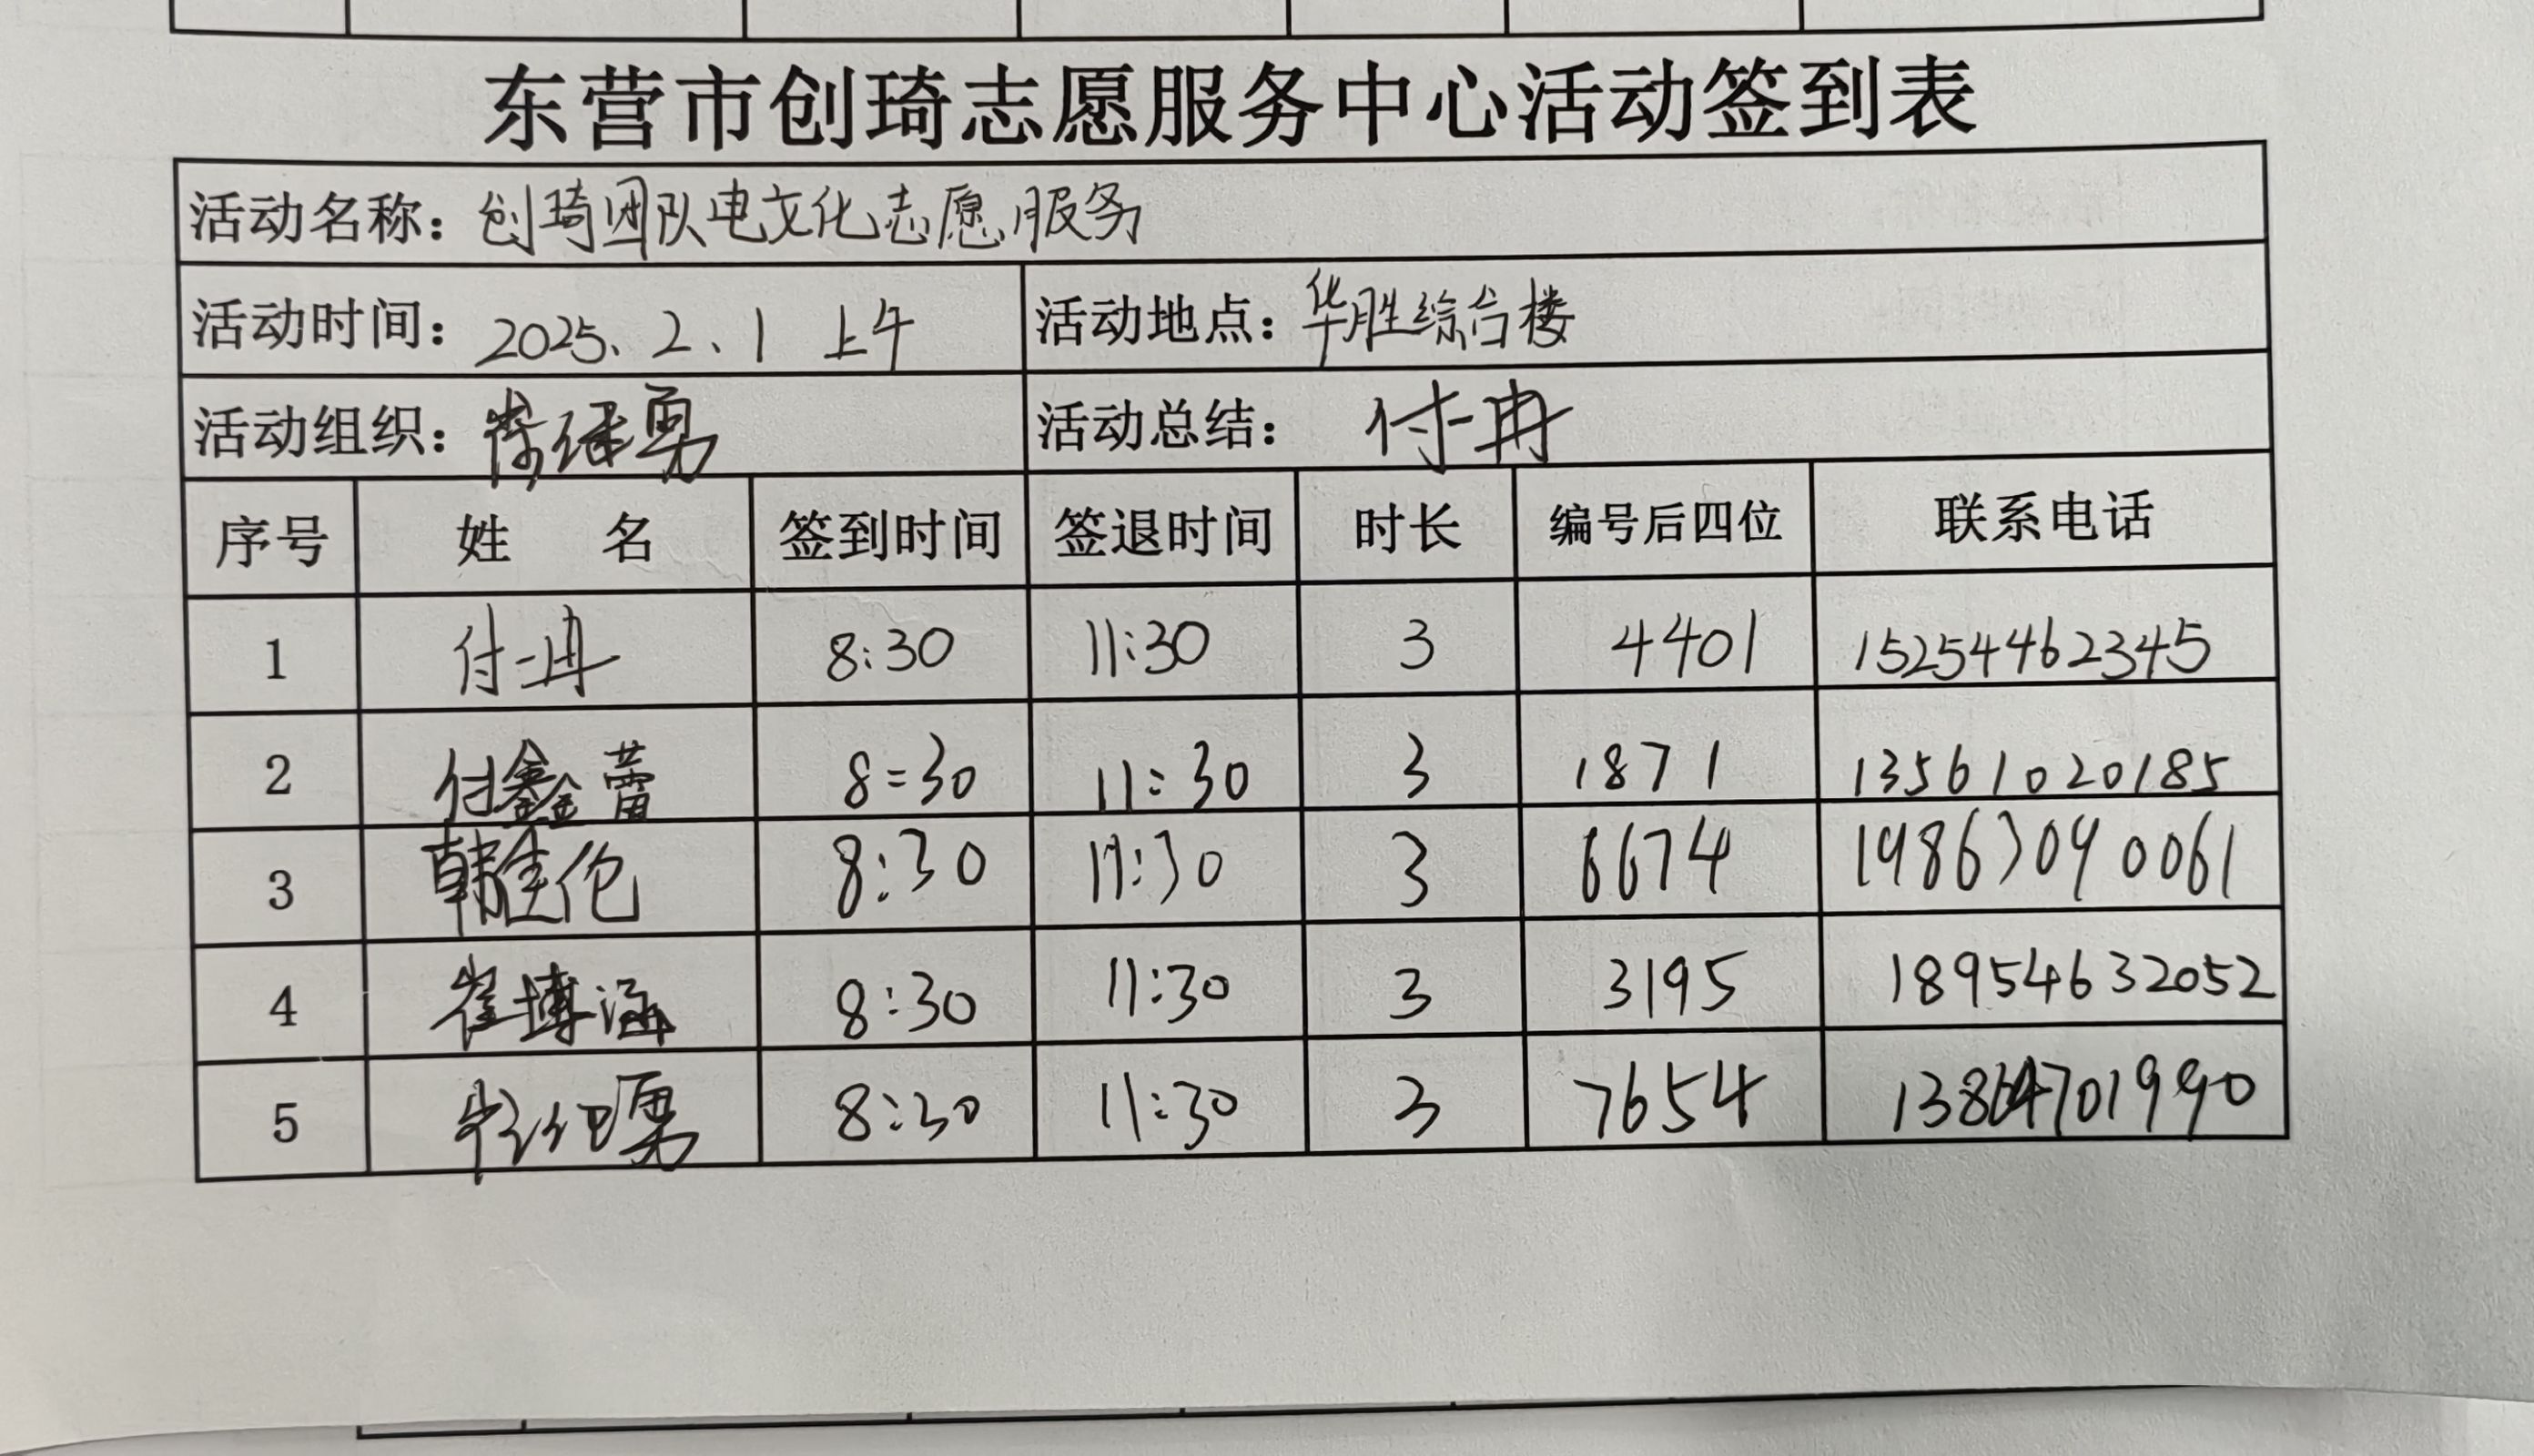 东营市创琦志愿服务中心活动签到表
活动名称：创琦团队电文化志愿服务
活动时间：2025、2、1 上午 活动地点：华胜综合楼
活动组织：勇 活动总结：付一冉
序号 姓 名 签到时间 签退时间 时长 编号后四位 联系电话
1 付一冉 8:30 11:30 3 4401 15254462345
2 付鑫蕾 8:30 11:30 3 1871 13561020185
3 韩佳伦 8:30 11:30 3 6674 19863090061
4 崔博涵 8:30 11:30 3 3195 18954632052
5 勇 8:30 11:30 3 7654 13864701990